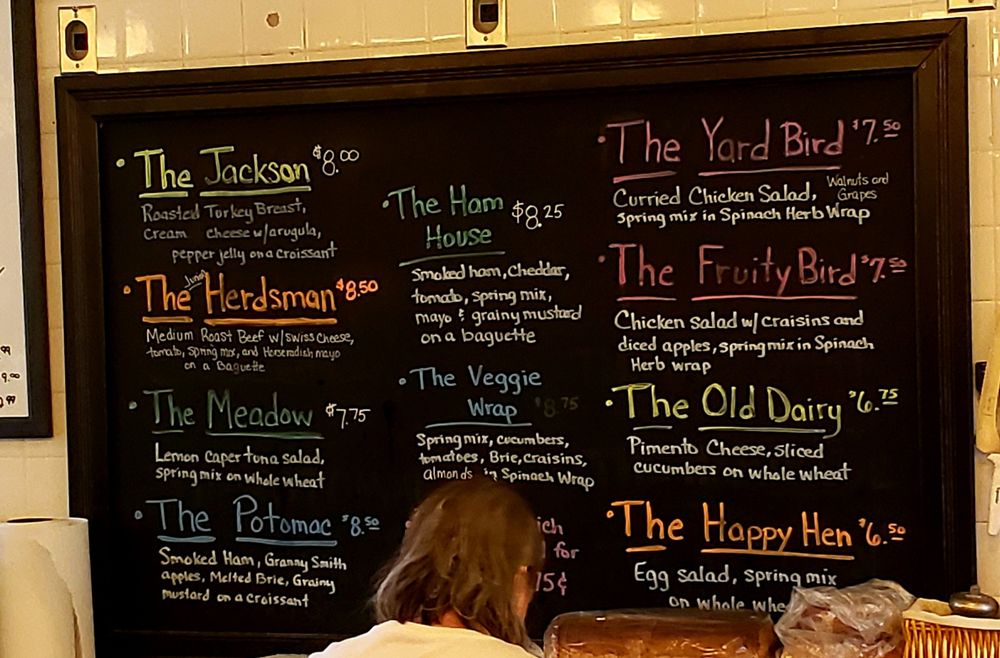 The Jackson $8.00
Roasted Turkey Breast,
Cream cheese w/arugula,
pepper jelly on a croissant
The Herdsman $8.50
Medium Roast Beef w/swiss cheese,
tomato, spring mix, and Horseradish mayo
on a Baguette
The Meadow $7.75
Lemon caper tuna salad,
spring mix on whole wheat
The Potomac $8.50
Smoked Ham, Granny Smith
apples, Melted Brie, Grainy
mustard on a croissant
The Ham $8.25
House
Smoked ham, Cheddar,
tomato, spring mix,
mayo & grainy mustard
on a baguette
The Veggie
Wrap $8.75
Spring mix, cucumbers,
tomatoes, Brie, craisins,
almonds in Spinach Wrap
for
75¢
The Yard Bird $7.50
Curried Chicken Salad, Walnuts and
Grapes
spring mix in Spinach Herb Wrap
The Fruity Bird $7.50
Chicken Salad w/ craisins and
diced apples, spring mix in Spinach
Herb wrap
The Old Dairy $6.75
Pimento Cheese, sliced
cucumbers on whole wheat
The Happy Hen $6.50
Egg salad, spring mix
on whole